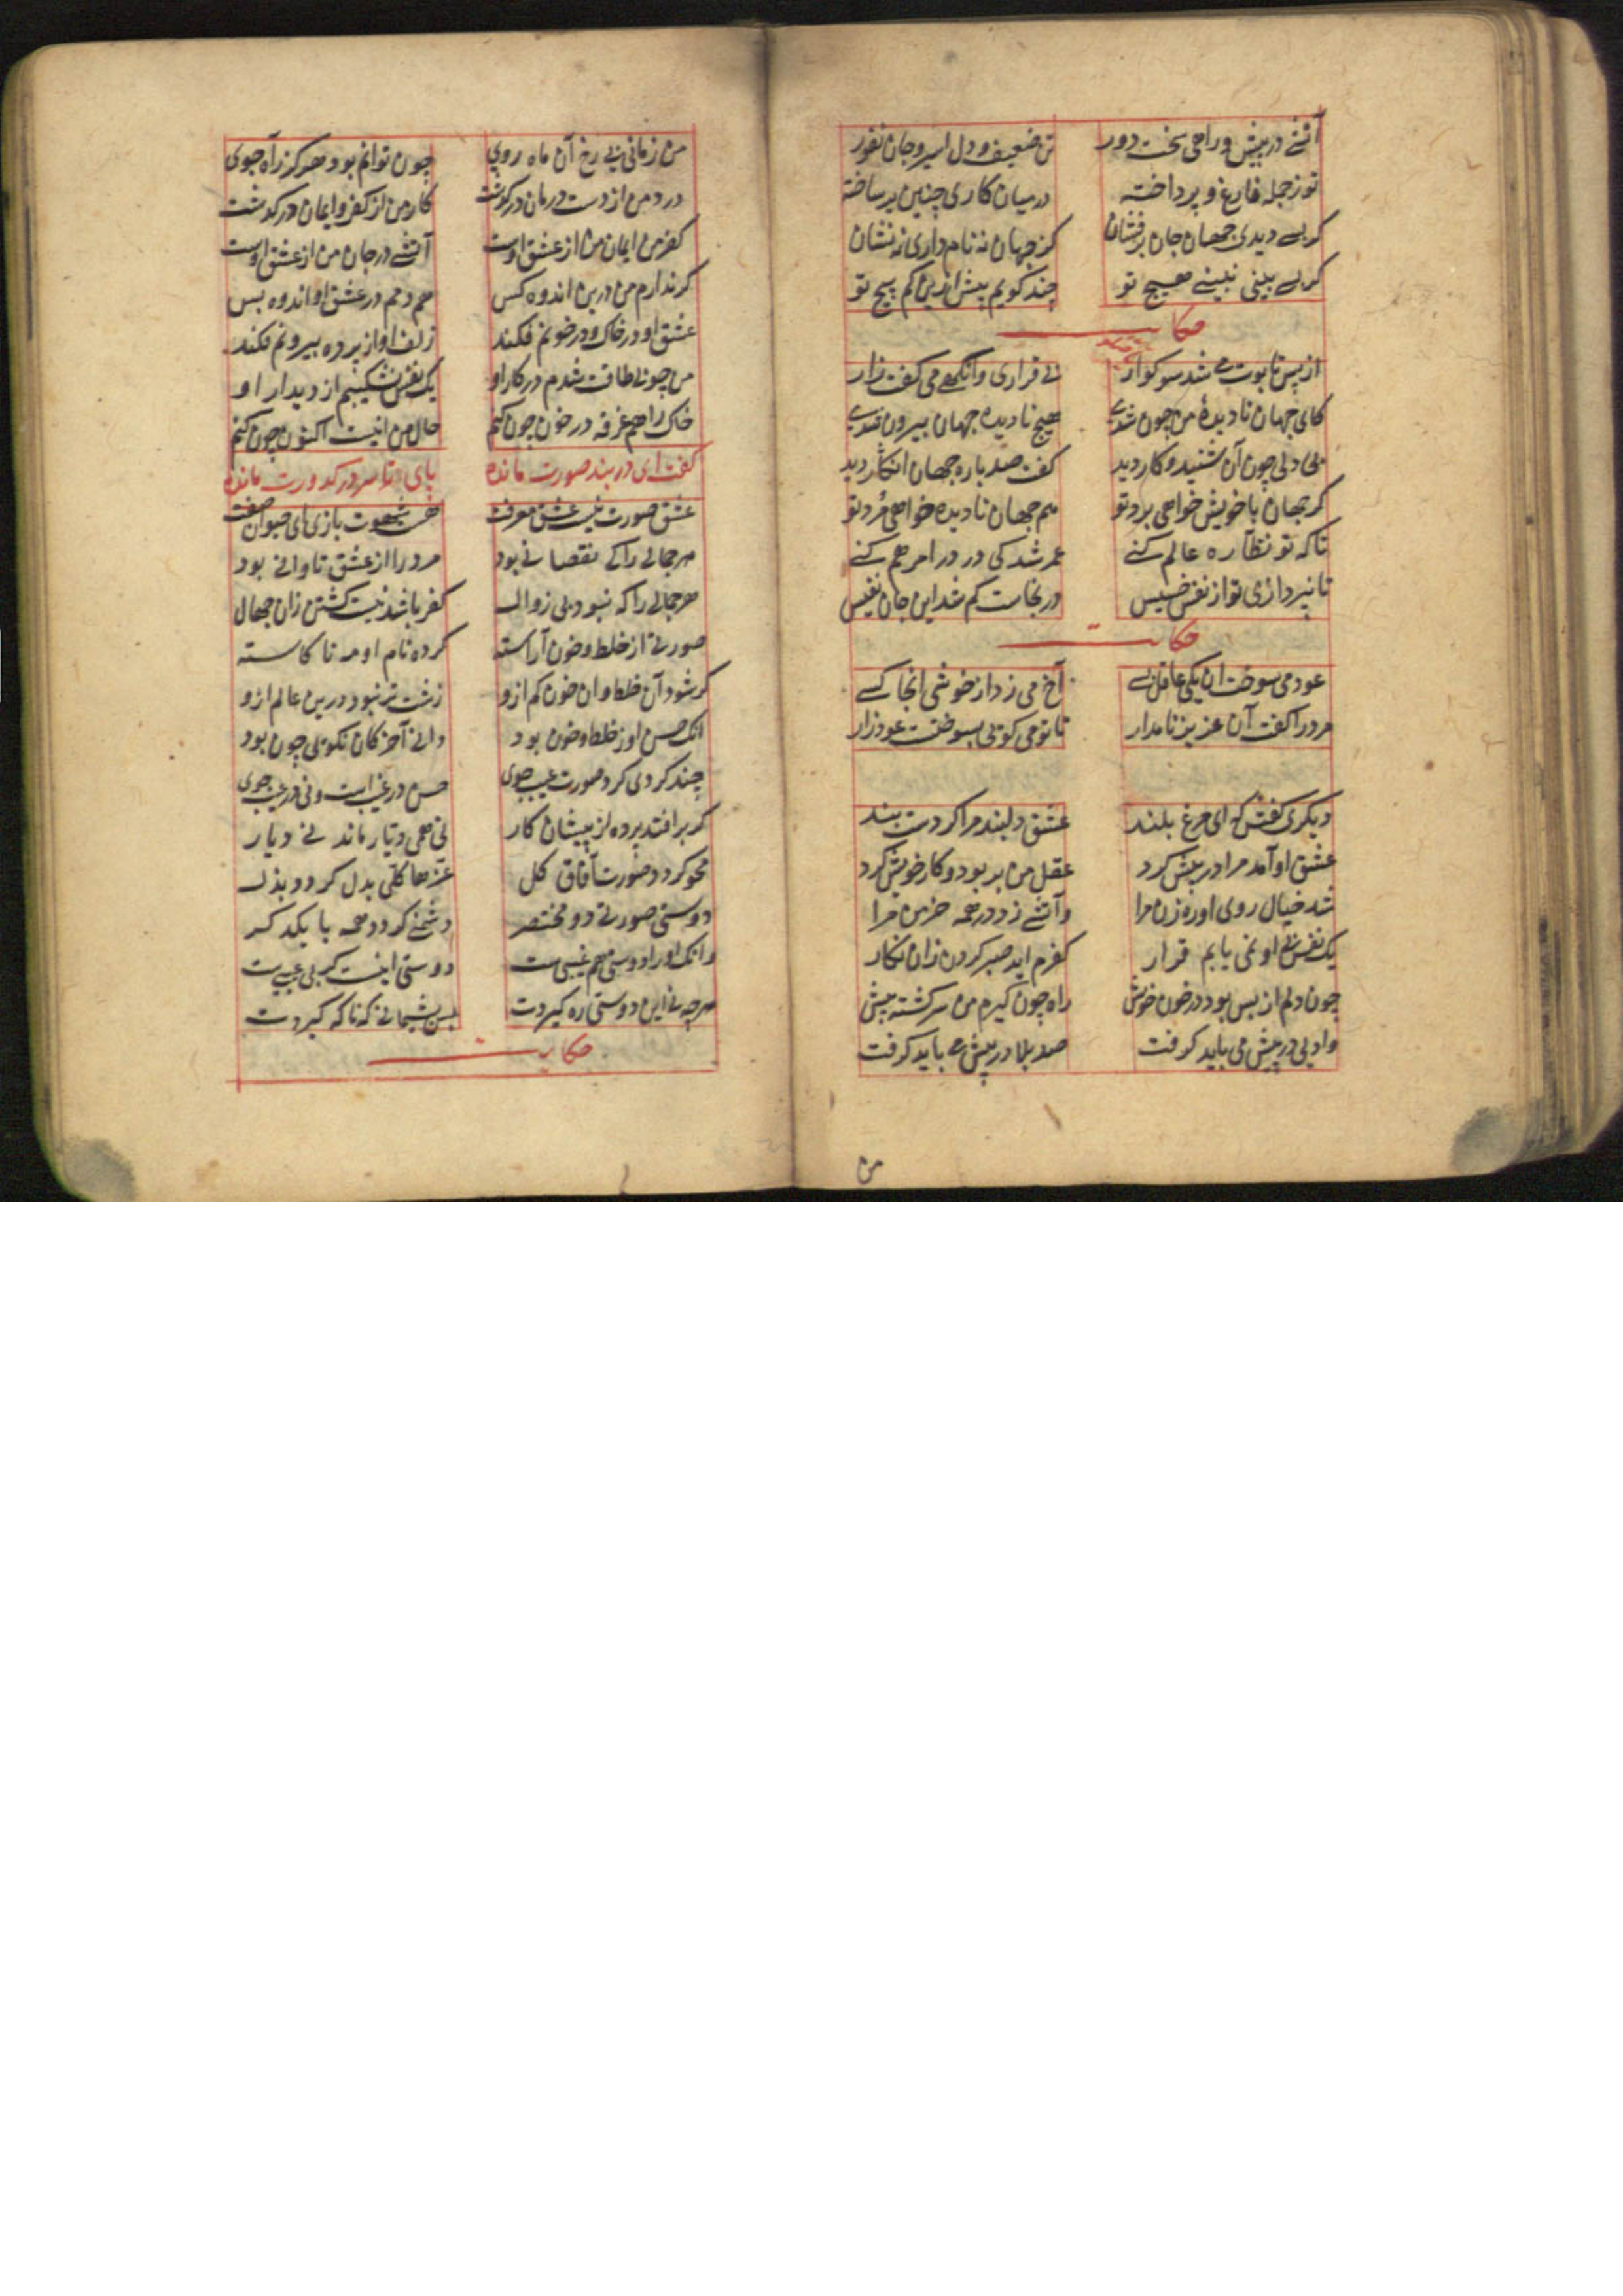 آتشی در پیش و راهی سخت دور تن ضعیف و دل اسیر و جان نفور
تو ز جمله فارغ و پرداخته در میان کاری چنین بر ساخته
کر بسی دیدی جهان جان برفشان کز جهان نه نام داری نه نشان
کر بسی بینی نبینی هیچ تو چند کویم بیش ازین کم پیچ تو
حکایت
از پس تابوت می شد سوکوار بی قراری وانکهی می کفت زار
کای جهان نادیدهٔ من چون شدی هیچ نادیده جهان بیرون شدی
بی دلی چون آن شنید و کار دید کفت صد باره جهان انکار دید
کر جهان با خویش خواهی برد تو هم جهان نادیده خواهی مرد تو
تا که تو نظاره عالم کنی عمر شد کی درد را مرهم کنی
تا نپردازی تو از نفس خسیس در نجاست کم شد این جان نفیس
حکایت
عود می سوخت ان یکی غافل بسی آخ می زد از خوشی انجا کسی
مرد را کفت آن عزیز نامدار تا تو می کویی بسوخت عود زار
دیکری کفتش که ای مرغ بلند عشق دلبند مرا کردست بند
عشق او آمد مرا در پیش کرد عقل من بربود و کار خویش کرد
شد خیال روی او ره زن مرا و آتشی زد در همه خرمن مرا
یک نفس بی او نمی یابم قرار کفرم اید صبر کردن زان نکار
چون دلم از بس بود در خون خویش راه چون کیرم من سرکشته پیش
وادیی در پیش می باید کرفت صد بلا در پیش می باید کرفت
من
من زمانی بی رخ آن ماه روی چون توانم بود هرکز راه جوی
درد من از دست درمان درکذشت کار من از کفر و ایمان درکذشت
کفر من ایمان من از عشق اوست آتشی در جان من از عشق اوست
کر ندارم من درین اندوه کس هم دمم در عشق او اندوه بس
عشق او در خاک و در خونم فکند زلف او از پرده بیرونم فکند
من چو بی طاقت شدم در کار او یک نفس نشکیبم از دیدار او
خاک راهم غرقه در خون چون کنم حال من اینست اکنون چون کنم
کفت ای در بند صورت مانده پای تا سر در کدورت مانده
عشق صورت نیست عشق معرفت هست شهوت بازی ای حیوان صفت
هر جمالی را که نقصانی بود مرد را از عشق تاوانی بود
هر جمالی را که نبود بی زوال کفر باشد نیست کشتن زان جمال
صورتی از خلط و خون آراسته کرده نام او مه ناکاسته
کر شود آن خلط و ان خون کم ازو زشت تر نبود درین عالم ازو
انک حسن او ز خلط و خون بود دانی آخر کان نکویی چون بود
چند کردی کرد صورت عیب جوی حسن در غیب است و نی در عیب جوی
کر برافتد پرده از پیشان کار نی همی دیار ماند نی دیار
محو کردد صورت آفاق کل عزها کلی بدل کردد بذل
دوستی صورتی دو مختصر دشمنی کردد همه با یکدکر
وانک او را دوستی هم غیبی ست دوستی اینست کز بی عیبی ست
هرچه نی این دوستی ره کیردت بس پشیمانی که ناکه کیردت
حکایت